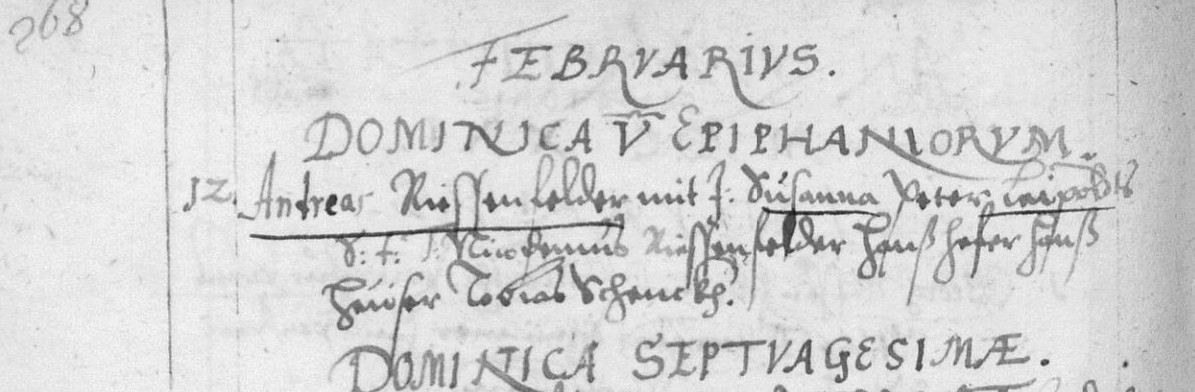 268
FEBRVARIVS.
DOMINICA V EPIPHANIORVM.
12. Andreas Riessenfelder mit J: Susanna Peter Leipoldts
S: t: Nicodemus Riessenfelder Hanß Hefer Hanß
Heuser Tobias Schenckh.
DOMINICA SEPTVAGESIMÆ.